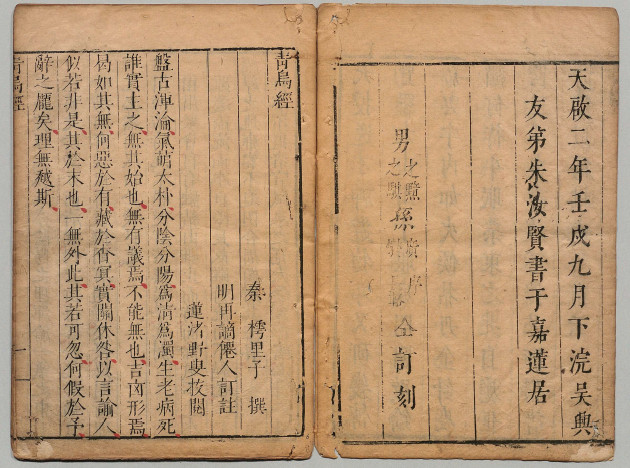 天啟二年壬戌九月下浣吳興
友弟朱汝賢書于嘉蓮居
男之
孫
仝訂刻
青烏經
秦 樗里子 撰
明再謫僊人訂註
蓮渚野叟校閱
盤古渾淪氣萌太朴分陰分陽為清為濁生老病死
誰實主之無其始也無有議焉不能無也吉凶形焉
曷如其無何惡於有藏於杳冥實關休咎以言諭人
似若非是其於末也一無外此其若可忽何假於予
辭之龐矣理無越斯
青烏經
一